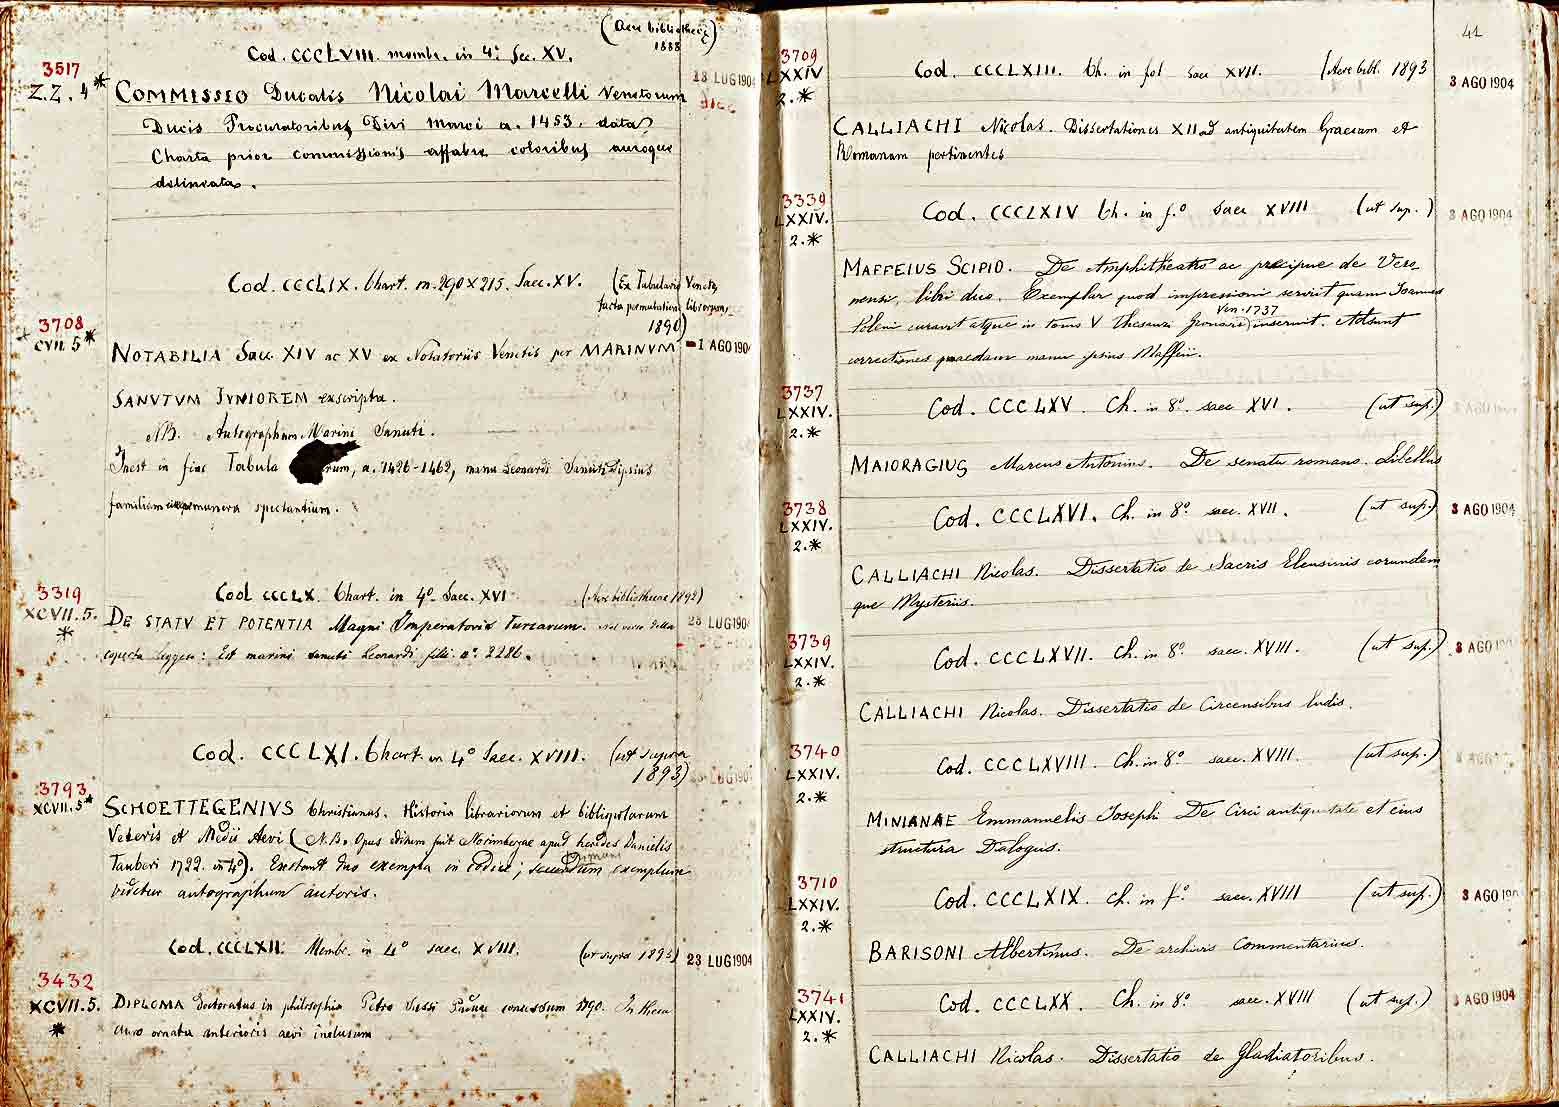 (Aere bibliothecę
1888)
Cod. CCCLVIII. membr. in 4º Sec. XV.
3517
Z.Z. 4*
23 LUG 1904
COMMISSIO Ducalis Nicolai Marcelli Venetorum
Ducis Procuratoribus Divi Marci a. 1453. data.
Charta prior commissionis affabre coloribus auroque
delineata.
Cod. CCCLIX. Chart. m. 290 x 215. Saec. XV. (Ex Tabulario Veneto
facta permutatione librorum,
1890)
3708
*CVII. 5*
NOTABILIA Saec. XIV ac XV ex Notatoriis Venetis per MARINVM
1 AGO 1904
SANVTVM IVNIOREM exscripta.
NB. Autographum Marini Sanuti.
Inest in fine Tabula rum, a. 1426-1462, manu Leonardi Sanuti ipsius
familiam munera spectantium.
3319
XCVII. 5.
*
Cod CCCLX. Chart. in 4º. Saec. XVI (Aere bibliothecae 1892)
DE STATV ET POTENTIA Magni Imperatoris Turcarum. Nel verso della
23 LUG 1904
coperta leggesi: Est marini sanuti Leonardi filii nº. 2286.
Cod. CCCLXI. Chart. in 4º Saec. XVIII. (ut supra
1893)
23 LUG 1904
3793
XCVII. 5*
SCHOETTEGENIVS Christianus. Historia librariorum et bibliopolarum
Veteris et Medii Aevi (N.B. Opus editum fuit Norimbergae apud heredes Danielis
Tauberi 1722. in 4º). Exstant duo exempla in codice; secundum exemplum
videtur autographum autoris.
Cod. CCCLXII. Membr. in 4º saec. XVIII. (ut supra 1893)
23 LUG 1904
3432
XCVII. 5.
*
DIPLOMA doctoratus in philosophia Petro concessum 1790. In theca
auro ornata anterioris aevi inclusum
41
3709
LXXIV
2.*
Cod. CCCLXIII. Ch. in fol saec XVII. (Aere bibl. 1893
3 AGO 1904
CALLIACHI Nicolas. Dissertationes XII ad antiquitatem Graecam et
Romanam pertinentes
3339
LXXIV.
2.*
Cod. CCCLXIV Ch. in f.º saec XVIII (ut sup.)
3 AGO 1904
MAFFEIUS SCIPIO. De Amphitheatro ac praecipue de Vero_
nensi, libri duo. Exemplar quod impressioni servit quam Joannes
Ven. 1737
Poleni curavit atque in tomo V thesauri inseruit. Adsunt
correctiones quaedam manu ipsius Maffeii.
3737
LXXIV.
2.*
Cod. CCCLXV. Ch. in 8º. saec XVI. (ut sup.)
MAIORAGIUS Marcus Antonius. De senatu romano. Libellus
3738
LXXIV.
2.*
Cod. CCCLXVI. Ch. in 8º. saec. XVII. (ut sup.)
3 AGO 1904
CALLIACHI Nicolas. Dissertatio de Sacris Eleusinis eorundem
que Mysteriis.
3739
LXXIV.
2.*
Cod. CCCLXVII. Ch. in 8º. saec. XVIII. (ut sup.)
3 AGO 1904
CALLIACHI Nicolas. Dissertatio de Circensibus ludis.
3740
LXXIV.
2.*
Cod. CCCLXVIII. Ch. in 8º saec. XVIII. (ut sup.)
3 AGO
MINIANAE Emmanuelis Joseph De Circi antiquitate et eius
structura Dialogus.
3710
LXXIV.
2.*
Cod. CCCLXIX. Ch. in f.º saec. XVIII (ut sup.)
3 AGO 190
BARISONI Albertinus. De archivis Commentarius.
3741
LXXIV.
2.*
Cod. CCCLXX. Ch. in 8º. saec. XVIII (ut sup.)
3 AGO 1904
CALLIACHI Nicolas. Dissertatio de Gladiatoribus.